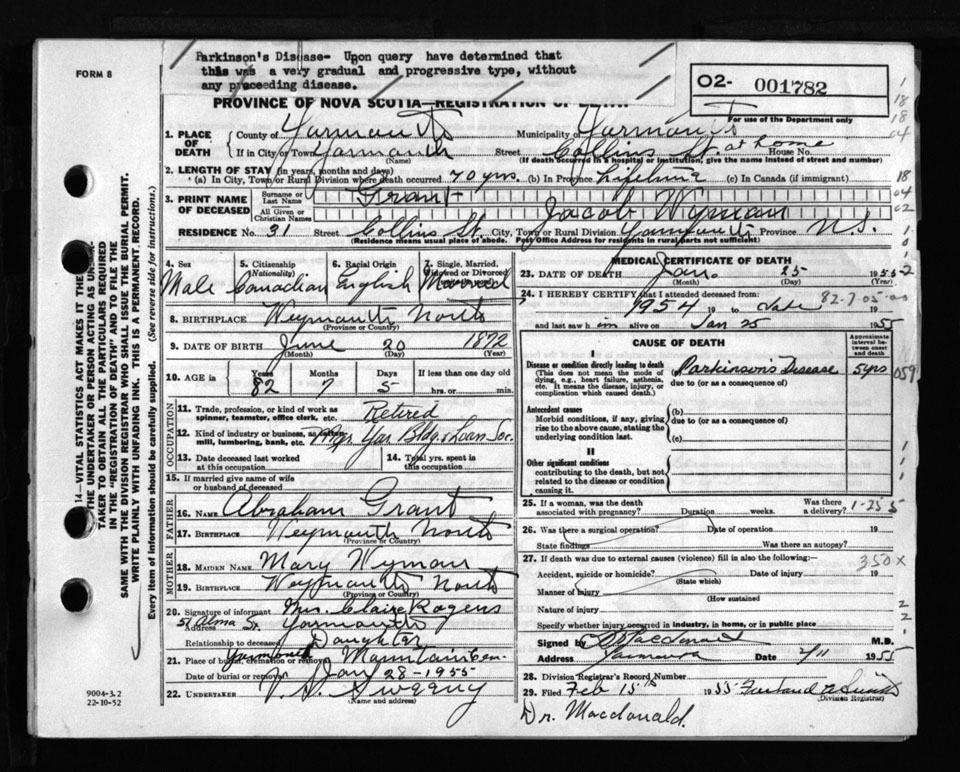 FORM 8
Parkinson's Disease- Upon query have determined that
this was a very gradual and progressive type, without
any preceeding disease.
O2- 001782
For use of the Department only
PROVINCE OF NOVA SCOTIA—REGISTRATION OF DEATH
1. PLACE OF DEATH
County of Yarmouth Municipality of Yarmouth
If in City or Town Yarmouth Street Collins St. at home House No.
(Name) (If death occurred in a hospital or institution, give the name instead of street and number)
2. LENGTH OF STAY (in years, months and days)
(a) In City, Town or Rural Division where death occurred 70 yrs. (b) In Province Lifetime (c) In Canada (if immigrant)
3. PRINT NAME OF DECEASED
Surname or Last Name Grant
All Given or Christian Names Jacob Wyman
RESIDENCE No. 31 Street Collins St. City, Town or Rural Division Yarmouth Province N.S.
(Residence means usual place of abode. Post Office Address for residents in rural parts not sufficient)
4. Sex Male
5. Citizenship (Nationality) Canadian
6. Racial Origin English
7. Single, Married, Widowed or Divorced
8. BIRTHPLACE Weymouth North
(Province or Country)
9. DATE OF BIRTH June 20 1872
(Month) (Day) (Year)
10. AGE in Years 82 Months 7 Days 5 If less than one day
hrs. or min.
OCCUPATION
11. Trade, profession, or kind of work as spinner, teamster, office clerk, etc. Retired
12. Kind of industry or business, as mill, lumbering, bank, etc. Mgr. Yar. Bldg. & Loan Soc.
13. Date deceased last worked at this occupation
14. Total yrs. spent in this occupation
15. If married give name of wife or husband of deceased
FATHER
16. NAME Abraham Grant
17. BIRTHPLACE Weymouth North
(Province or Country)
MOTHER
18. MAIDEN NAME Mary Wyman
19. BIRTHPLACE Weymouth North
(Province or Country)
20. Signature of informant Mrs. Claire Rogers
Address 51 Alma St. Yarmouth
Relationship to deceased Daughter
21. Place of burial, cremation or removal Yarmouth Mountain Cem.
Date of burial or removal Jan 28-1955
22. UNDERTAKER V. S. Sweeny
(Name and address)
MEDICAL CERTIFICATE OF DEATH
23. DATE OF DEATH Jan. 25 1955
(Month) (Day) (Year)
24. I HEREBY CERTIFY that I attended deceased from:
1954 19 to date 19
and last saw him alive on Jan 25 1955
CAUSE OF DEATH
Approximate interval between onset and death
I
Disease or condition directly leading to death
(This does not mean the mode of dying, e.g., heart failure, asthenia, etc. It means the disease, injury, or complication which caused death.)
Parkinson's Disease 5 yrs
due to (or as a consequence of)
Antecedent causes
Morbid conditions, if any, giving rise to the above cause, stating the underlying condition last.
(b)
due to (or as a consequence of)
(c)
II
Other significant conditions
contributing to the death, but not related to the disease or condition causing it.
25. If a woman, was the death associated with pregnancy? Duration weeks. Was there a delivery?
1-25 5
26. Was there a surgical operation? Date of operation 19
State findings Was there an autopsy?
27. If death was due to external causes (violence) fill in also the following:
350X
Accident, suicide or homicide? Date of injury 19
(State which)
Manner of Injury
(How sustained)
Nature of injury
Specify whether injury occurred in industry, in home, or in public place
Signed by Macdonald M.D.
Address Yarmouth Date 2/11 1955
28. Division Registrar's Record Number
29. Filed Feb 15th 1955
(Division Registrar)
Dr. Macdonald.
9004-3.2
22-10-52
Every item of information should be carefully supplied. (See reverse side for instructions.)